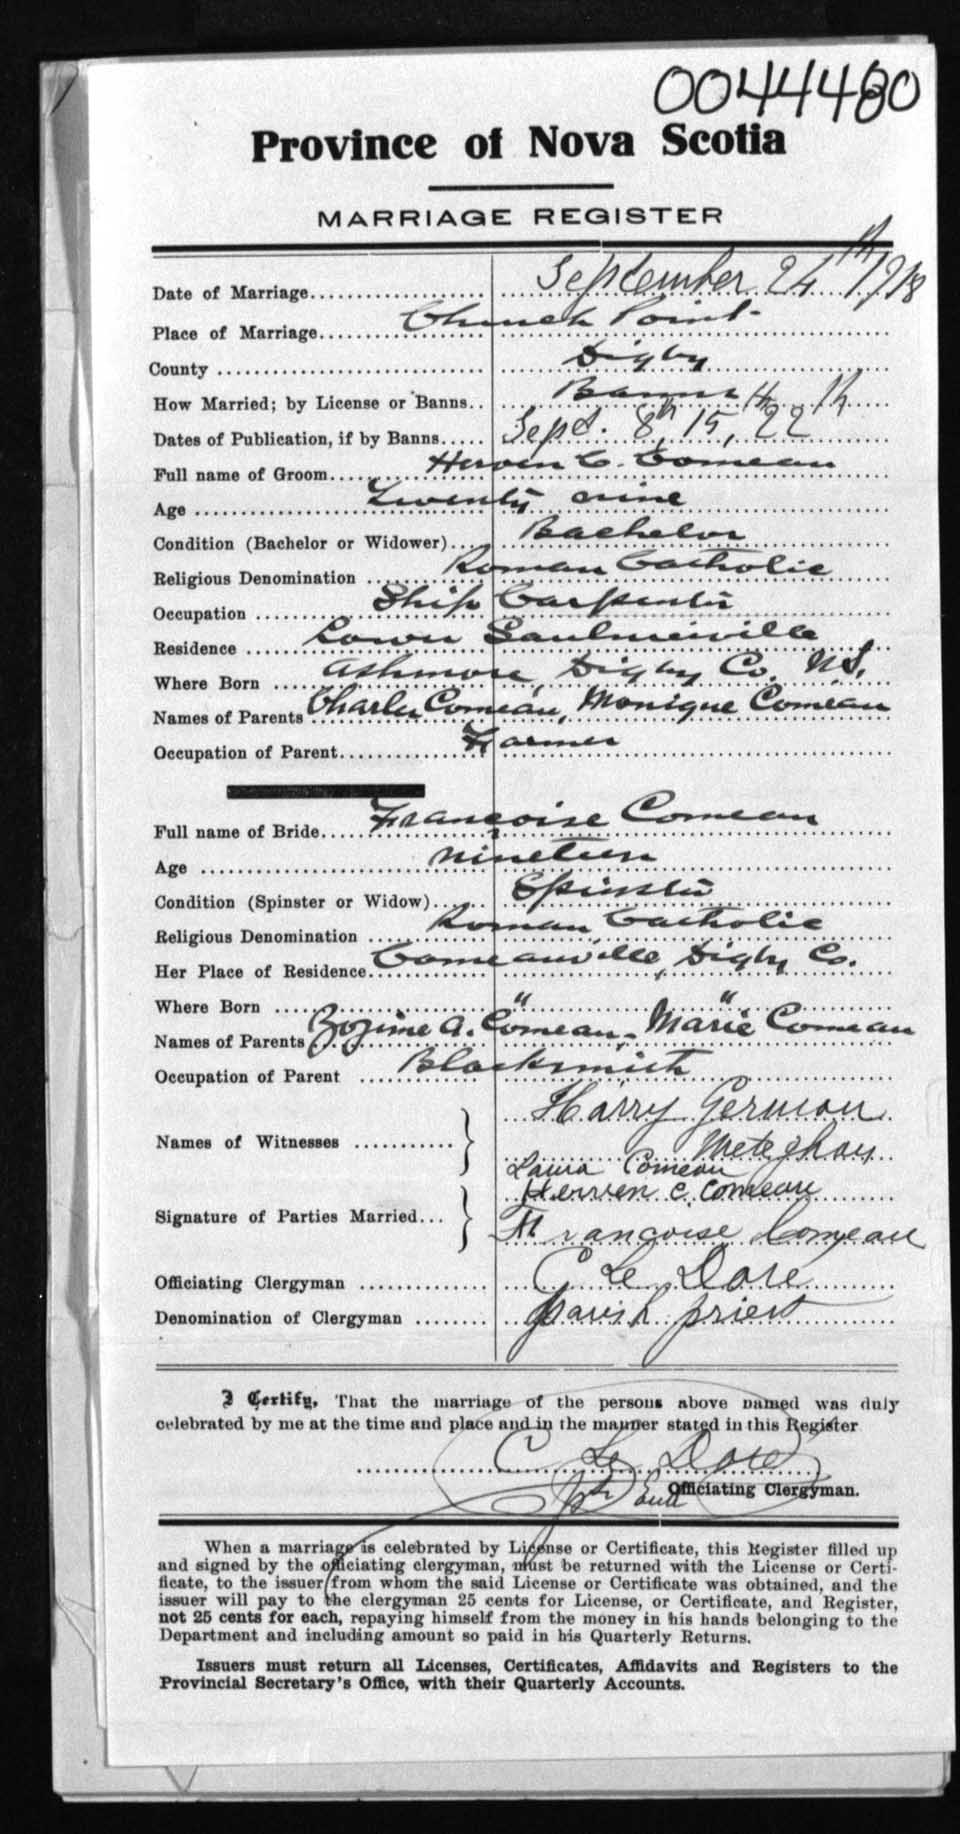 0044480
Province of Nova Scotia
MARRIAGE REGISTER
Date of Marriage September 24th 1918
Place of Marriage Church Point
County Digby
How Married; by License or Banns Banns
Dates of Publication, if by Banns Sept. 8th, 15th, 22th
Full name of Groom C. Comeau
Age Twenty nine
Condition (Bachelor or Widower) Bachelor
Religious Denomination Roman Catholic
Occupation Ship Carpenter
Residence Lower Saulnierville
Where Born Ashmore, Digby Co. N.S.
Names of Parents Charles Comeau, Monique Comeau
Occupation of Parent Farmer
Full name of Bride Françoise Comeau
Age Nineteen
Condition (Spinster or Widow) Spinster
Religious Denomination Roman Catholic
Her Place of Residence Comeauville, Digby Co.
Where Born " "
Names of Parents Zozime A. Comeau, Marie Comeau
Occupation of Parent Blacksmith
Names of Witnesses Harry German
Meteghan
Laura Comeau
Signature of Parties Married C. Comeau
Francoise Comeau
Officiating Clergyman C Le Dore
Denomination of Clergyman parish priest
I Certify, That the marriage of the persons above named was duly
celebrated by me at the time and place and in the manner stated in this Register
C Le Dore
Officiating Clergyman.
When a marriage is celebrated by License or Certificate, this Register filled up
and signed by the officiating clergyman, must be returned with the License or Certi-
ficate, to the issuer from whom the said License or Certificate was obtained, and the
issuer will pay to the clergyman 25 cents for License, or Certificate, and Register,
not 25 cents for each, repaying himself from the money in his hands belonging to the
Department and including amount so paid in his Quarterly Returns.
Issuers must return all Licenses, Certificates, Affidavits and Registers to the
Provincial Secretary's Office, with their Quarterly Accounts.